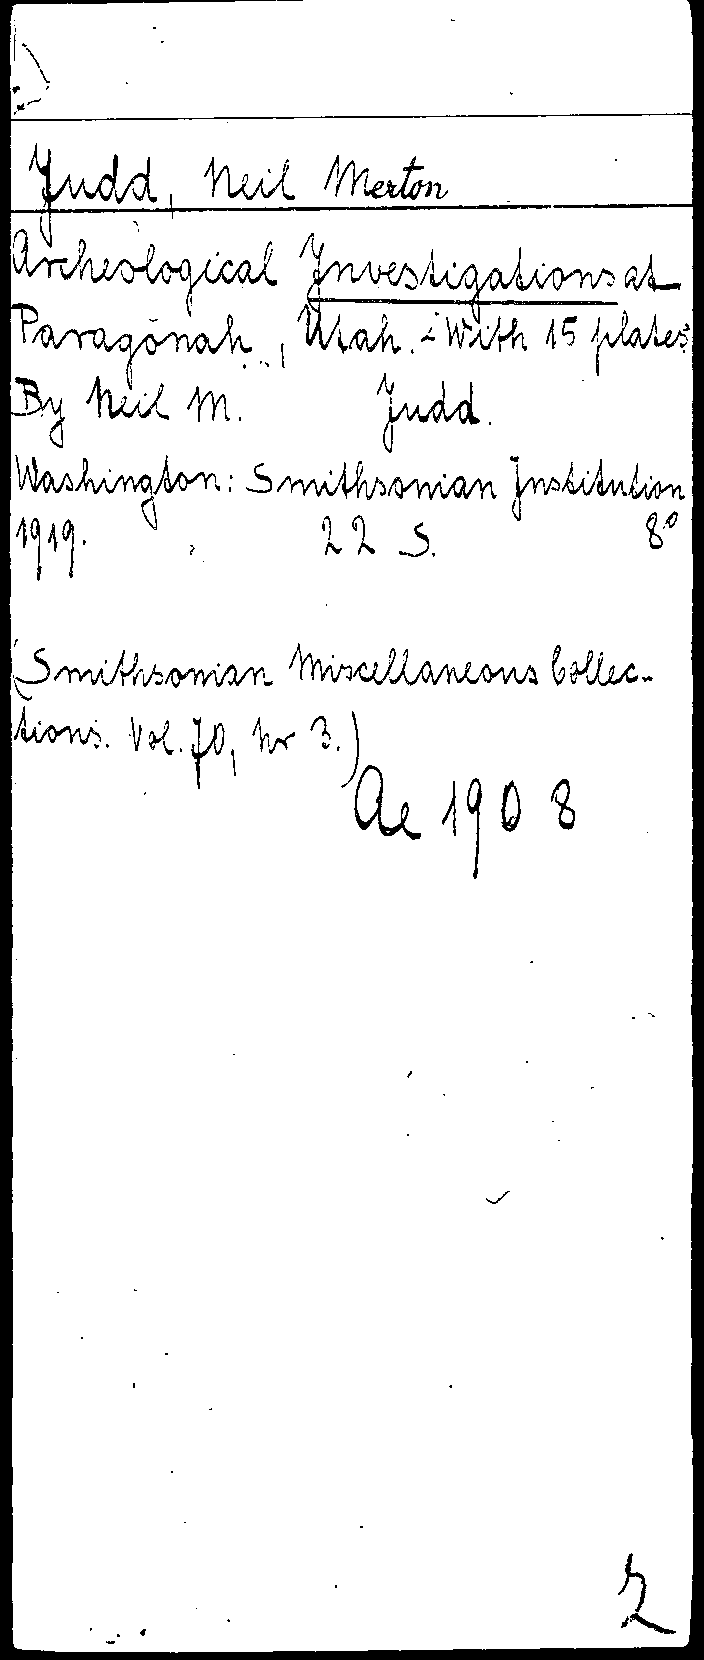 Judd, Neil Merton
Archeological Investigations at
Paragonah, Utah. - With 15 plates
By Neil M. Judd.
Washington: Smithsonian Institution
1919. 22 S. 8°
(Smithsonian Miscellaneous Collec-
tions. Vol. 70, Nr 3.)
Ae 1908
2